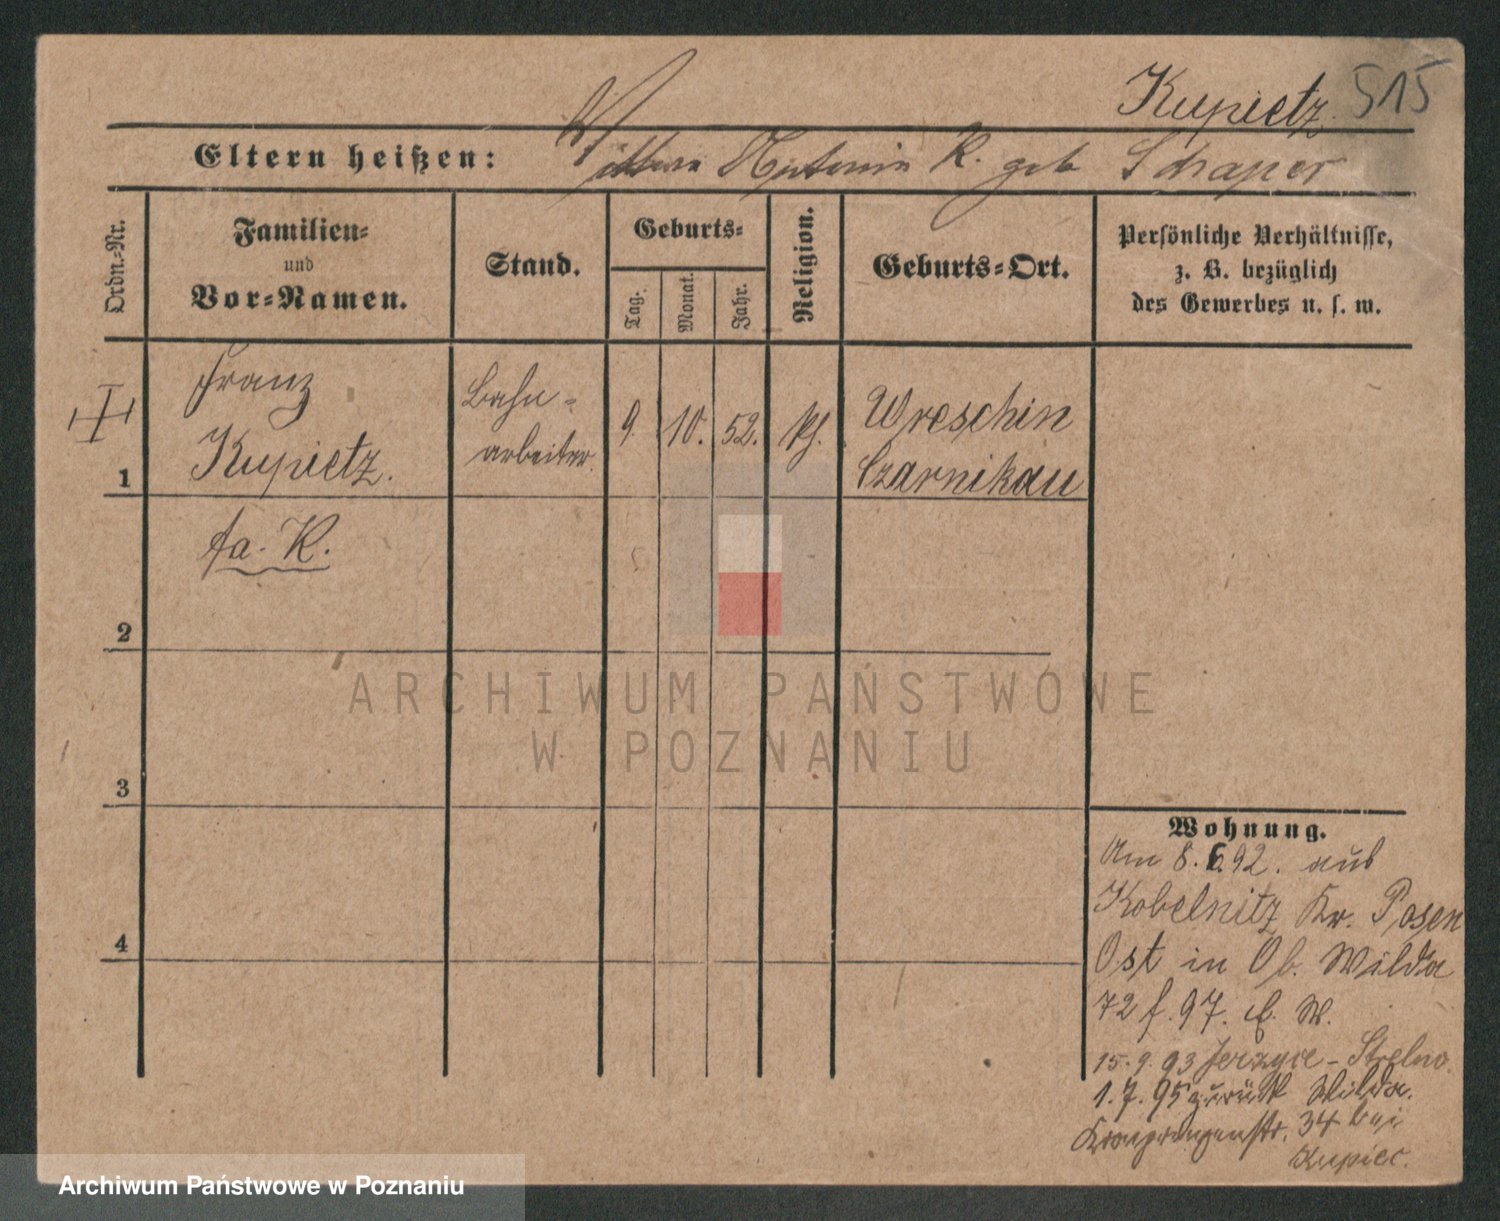 Kupietz 515
Eltern heißen: Antonin K. geb Schaper
Ordn.-Nr.
Familien-
und
Vor-Namen.
Stand.
Geburts-
Tag.
Monat.
Jahr.
Religion.
Geburts-Ort.
Persönliche Verhältnisse,
z. B. bezüglich
des Gewerbes u. s. w.
1
Franz
Kupietz.
Bahn-
arbeiter.
9.
10.
52.
Wreschin
Czarnikau
fa. K.
2
3
4
Wohnung.
Am 8.6.92. aus
Kobelnitz Kr. Posen
Ost in Ob. Wilda
72 f. 97. W.
15.9.93 Jerzyce - Strelno.
1.7.95 zurück Wilda.
Kronprinzenstr. 34 bei
Kupiec.
ARCHIWUM PAŃSTWOWE
W POZNANIU
Archiwum Państwowe w Poznaniu